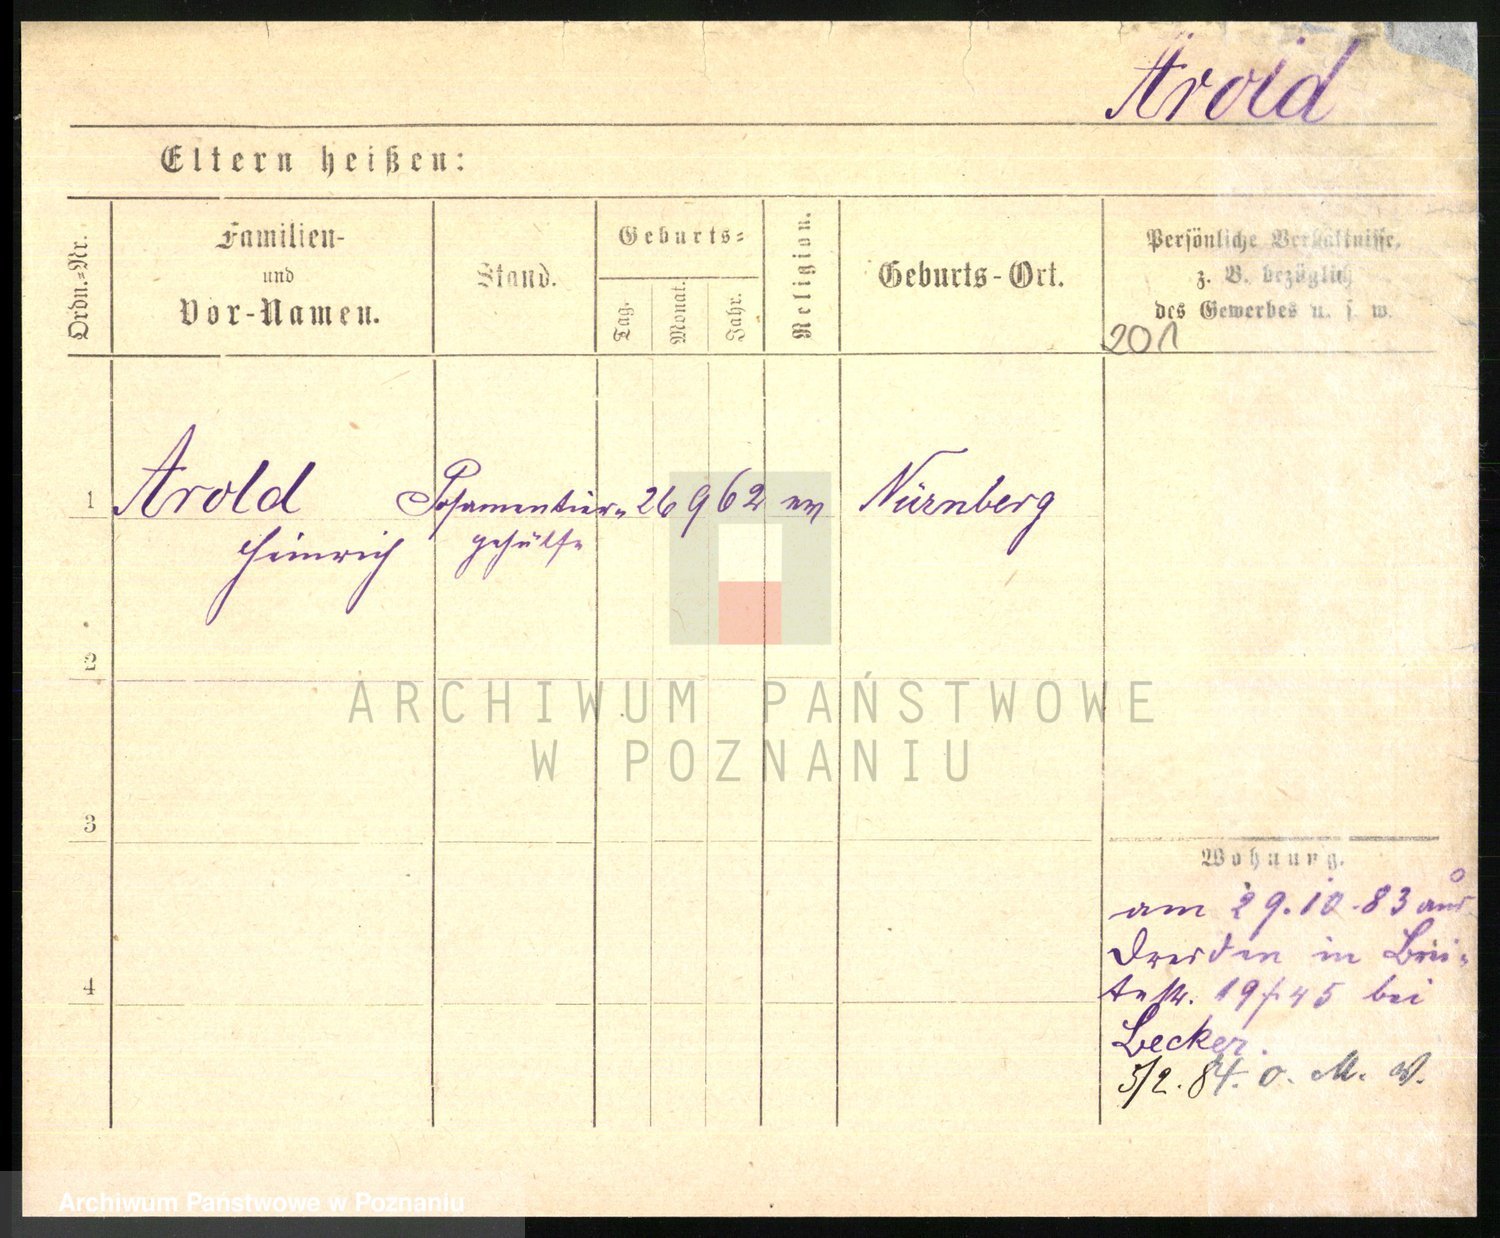 Arold
Eltern heißen:
Ordn.=Nr.
Familien-
und
Vor-Namen.
Stand.
Geburts=
Tag.
Monat.
Jahr.
Religion.
Geburts-Ort.
Persönliche Verhältnisse,
z. B. bezüglich
des Gewerbes u. s. w.
201
1 Arold Posamentier= 26 9 62 ev Nürnberg
Heinrich gehülfe
2
3
4
Wohnung.
am 29.10.83 aus
Dresden in Brei=
testr. 19/45 bei
Becker.
5/2. 84. o. M. V.
ARCHIWUM PAŃSTWOWE
W POZNANIU
Archiwum Państwowe w Poznaniu